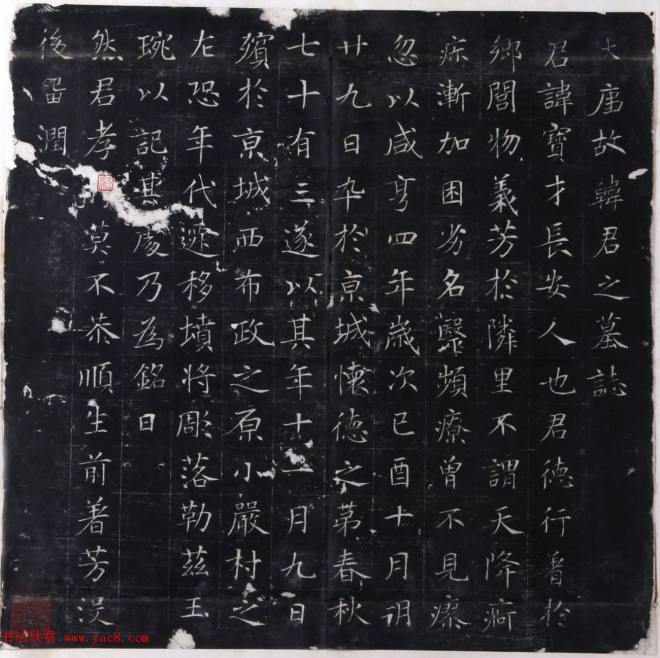 大唐故韓君之墓誌
君諱寶才長安人也君德行著於
鄉閭物義芳於隣里不謂天降痾
疾漸加困劣名醫頻療曾不見瘳
忽以咸亨四年歲次己酉十月朔
廿九日卒於京城懷德之第春秋
七十有三遂以其年十一月九日
殯於京城西布政之原小嚴村之
左恐年代遞移墳將彫落勒茲玉
琬以記其處乃為銘曰
然君孝莫不恭順生前著芳没
後留潤
书法欣赏 www.yac8.com